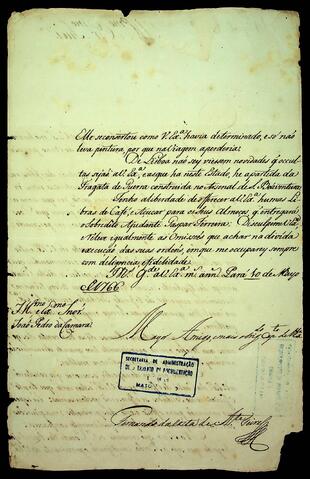 se consertou como V. Ex.ª havia determinado, e só naõ
leva pintura, por que na Viagem a perderia.
De Lisboa naõ sey viessem novidades q' occul-
tas sejaõ a V. Ex.ª, easque ha neste Estado, he apartida da
Fragata de Guerra construida no Arsenal de S. Boaventura.
Tenho aliberdade de offerecer a V. Ex.ª humas Li-
bras de Café, e Açucar para os seus Almoços, q' entregará
o Sobredito Ajudante Gaspar Ferreira. Desculpe V. Ex.ª
igualmente as Omissoēs que achar na devida
execuçaõ das suas ordens, em que me occuparey sempre
com deligencia, efidelidade.
D.s G.de a V. Ex.ª m.s ann.s Pará 10 de Mayo
de 1766
Ill.mo e Ex.mo Snór.
Joaõ Pedro da Camara
Mayor Amigo, e mais
SECRETARIA DE ADMINISTRAÇÃO
MATO
Fernando da Costa de Attaide